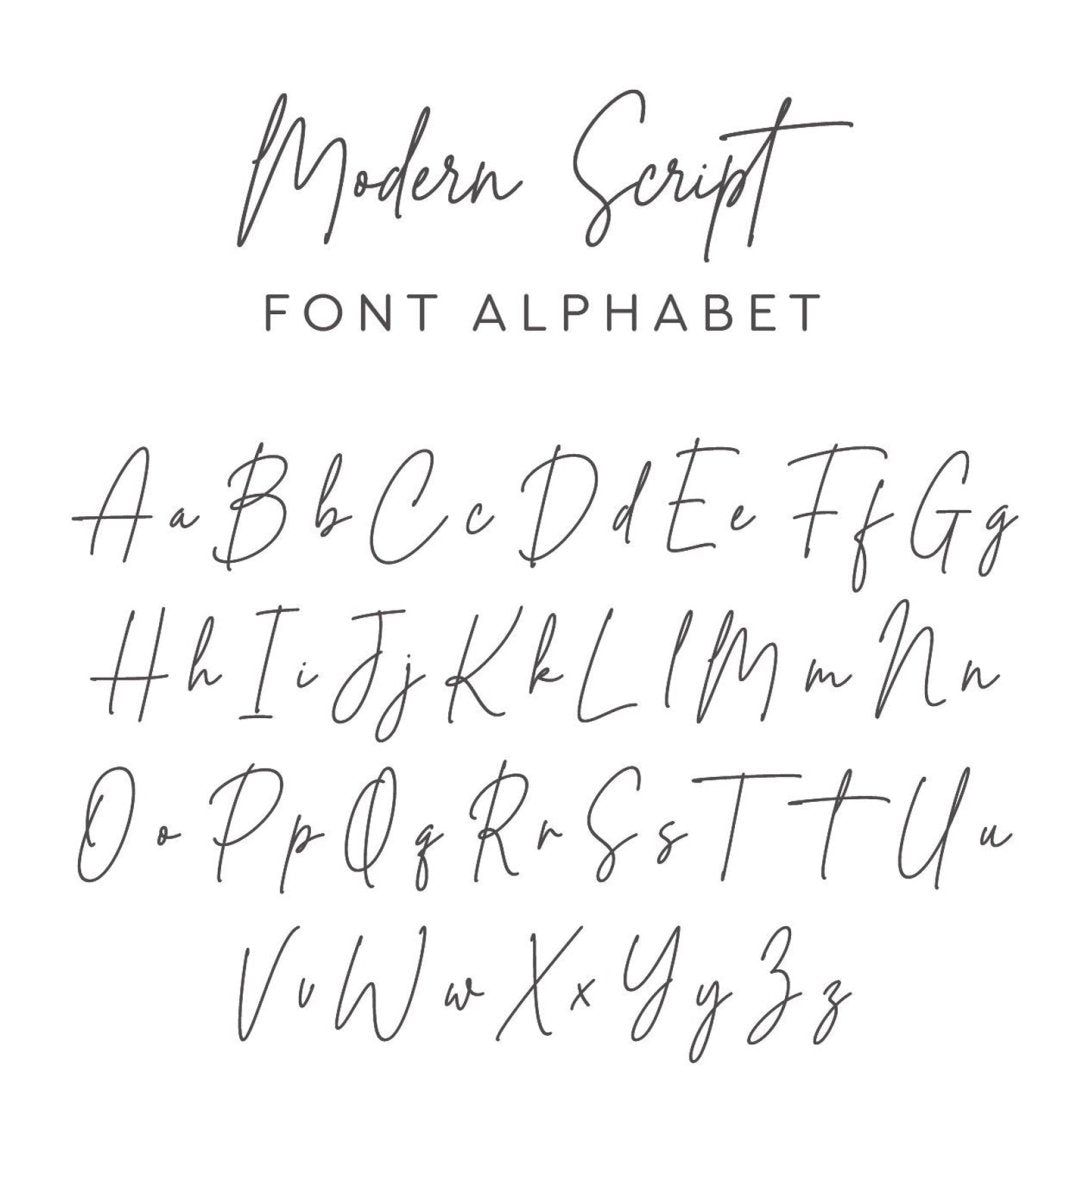 Modern Script
FONT ALPHABET
Aa Bb Cc Dd Ee Ff Gg
Hh Ii Jj Kk Ll Mm Nn
Oo Pp Qq Rr Ss Tt Uu
Vv Ww Xx Yy Zz